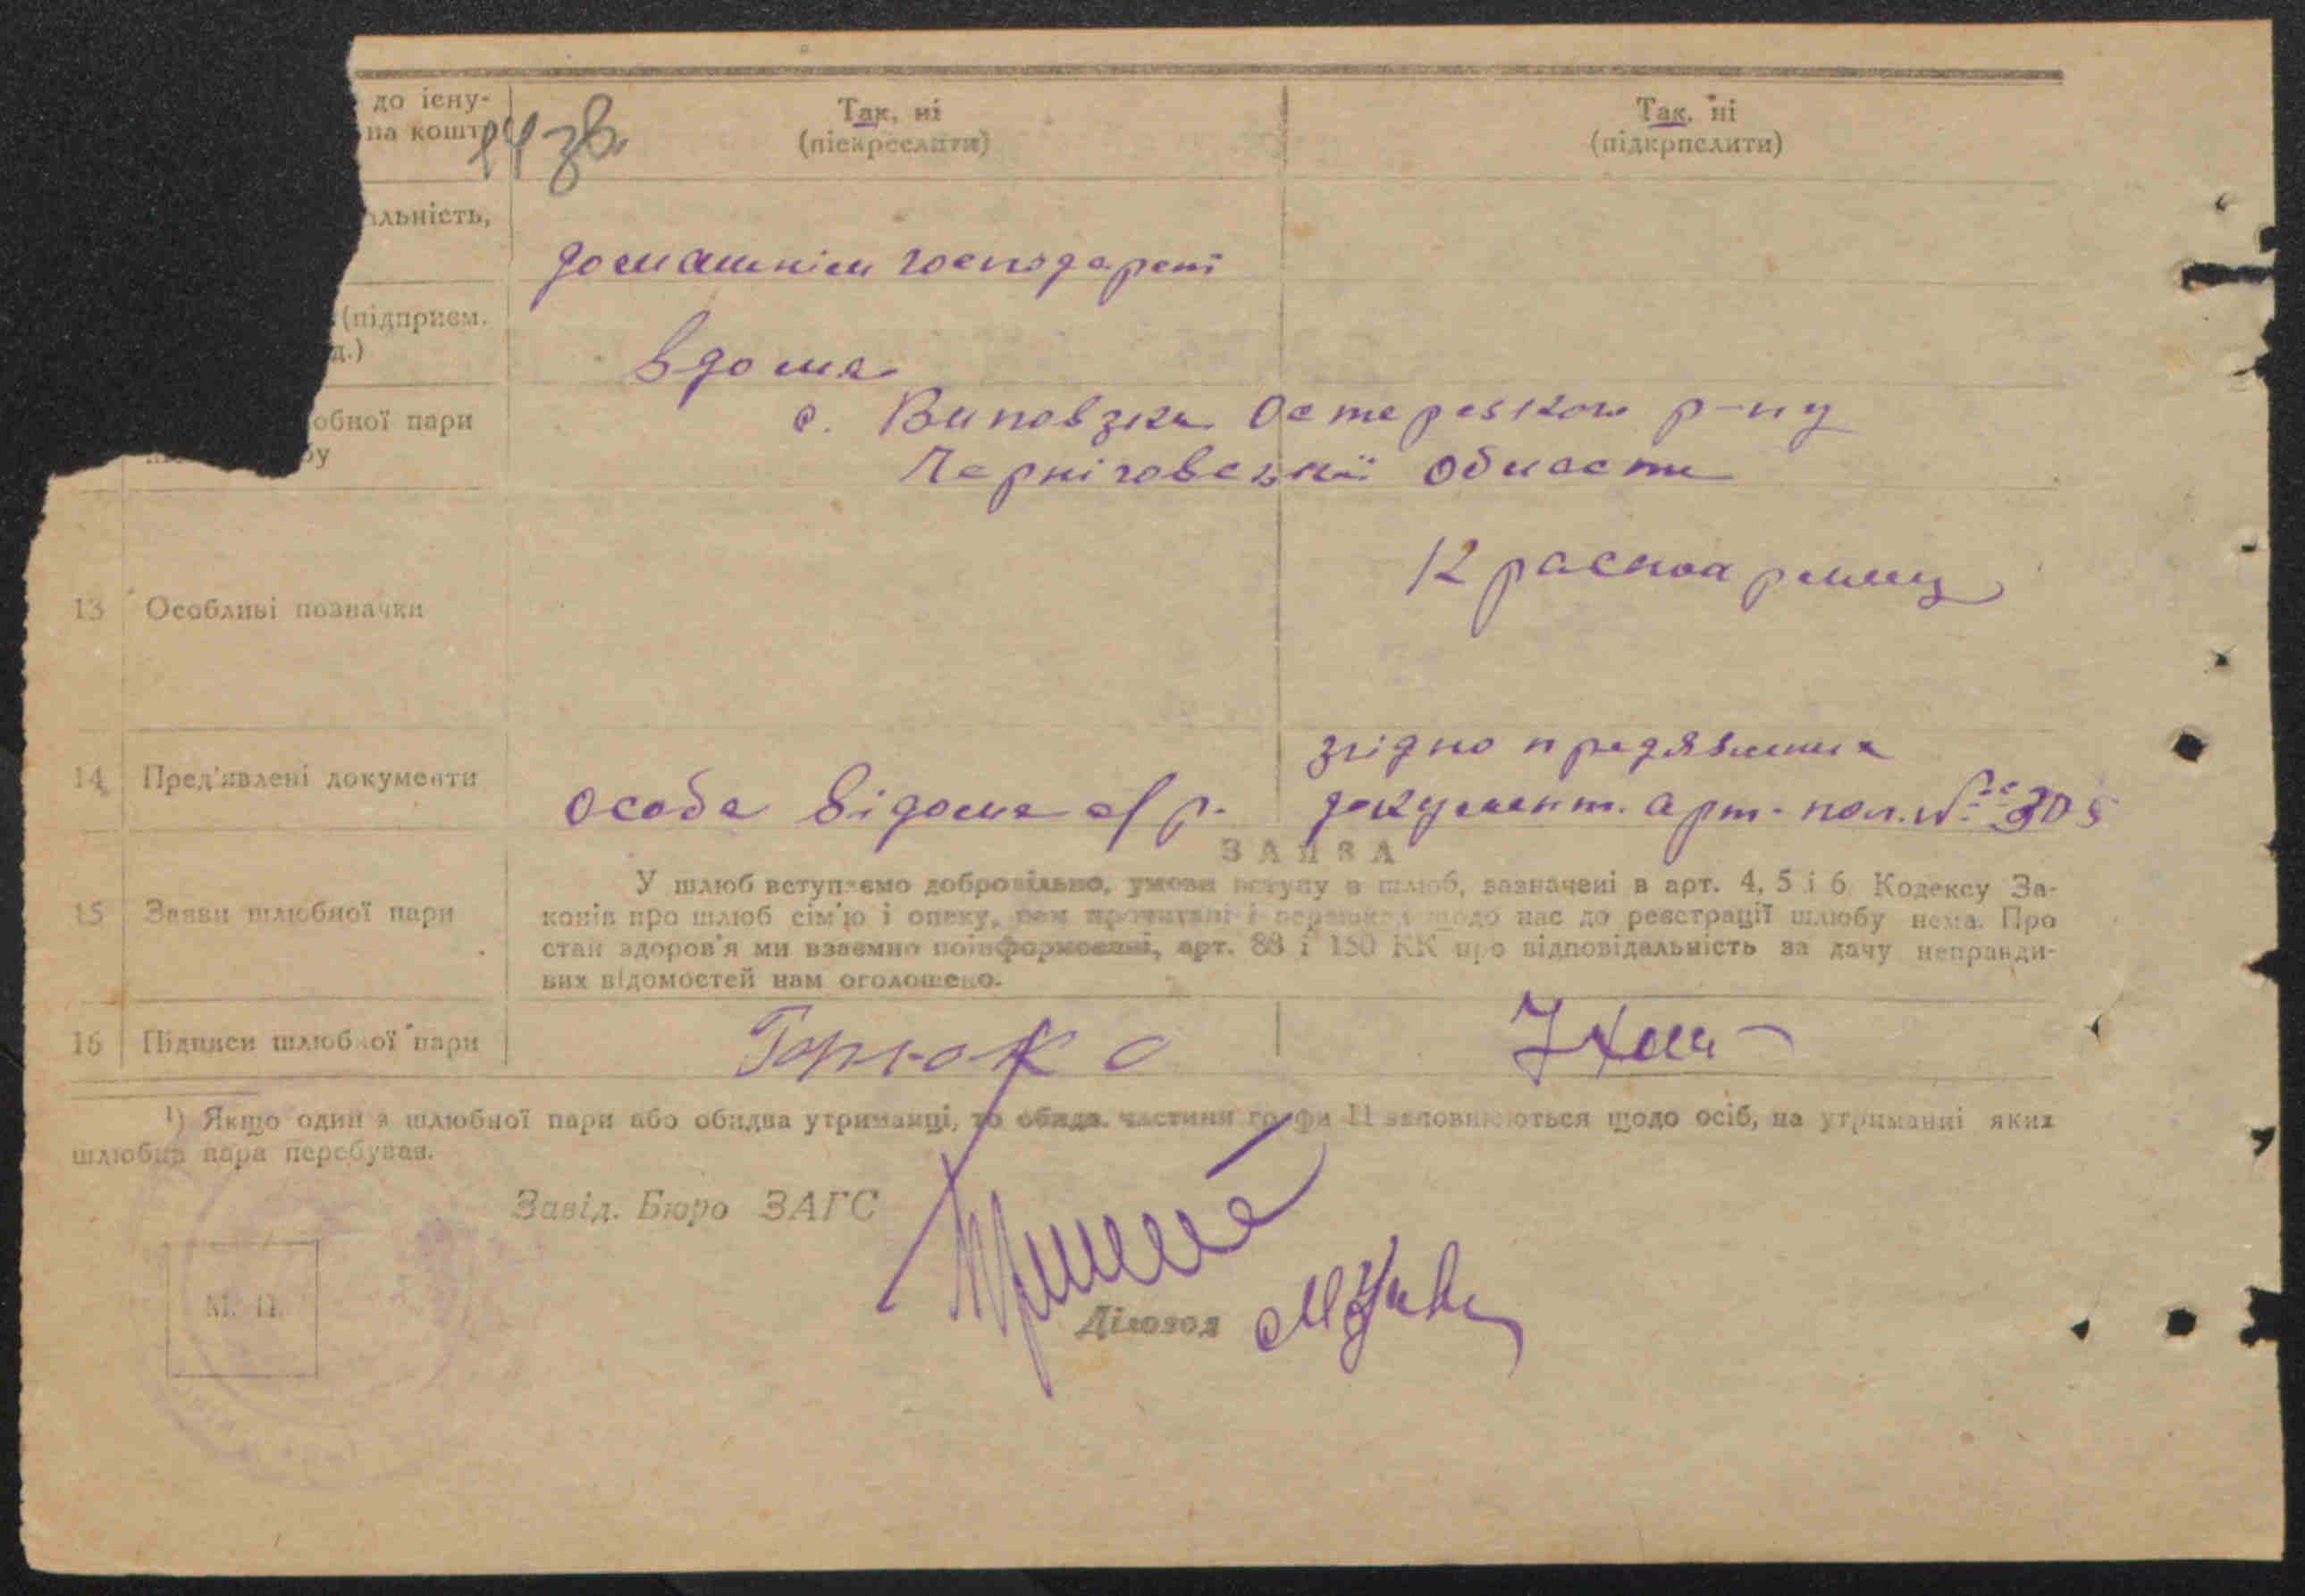 до існу-
на кошт
14 зв.
Так, ні
(піскреслити)
Так, ні
(підкрпслити)
альність,
домашнім господарені
(підприєм.
д.)
вдома
обної пари
бу
с. Виповзки Остерського р-ну
Чернігівської області
13 Особливі позначки
Красноармієц
14 Пред'явлені документи
особа відома с/р.
згідно предявлених
документ. арт. пол. № 305
ЗАЯВА
15 Заяви шлюбної пари
У шлюб вступаємо добровільно, умови вступу в шлюб, зазначені в арт. 4, 5 і 6 Кодексу За-
конів про шлюб сім'ю і опеку, нам прочитані і перешкод щодо нас до реєстрації шлюбу нема. Про
стан здоров'я ми взаємно поінформовані, арт. 88 і 130 КК про відповідальність за дачу неправди-
вих відомостей нам оголошено.
16 Підписи шлюбної пари
¹) Якщо один з шлюбної пари або обидва утриманці, то обидв. частини графи 11 заповнюються щодо осіб, на утриманні яких
шлюбна пара перебуває.
Завід. Бюро ЗАГС
М. П.
Діловод